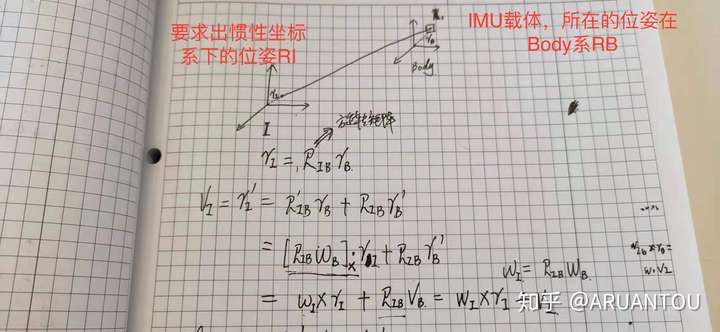 要求出惯性坐标
系下的位姿RI
IMU载体，所在的位姿在
Body系RB
Body
I
旋转矩阵
r_I = R_IB r_B
V_I = r_I' = R'_IB r_B + R_IB r_B'
= [R_IB W_B]× r_I + R_IB r_B'
W_I = R_IB W_B
= W_I × r_I + R_IB V_B = W_I × r_I
知乎 @ARUANTOU